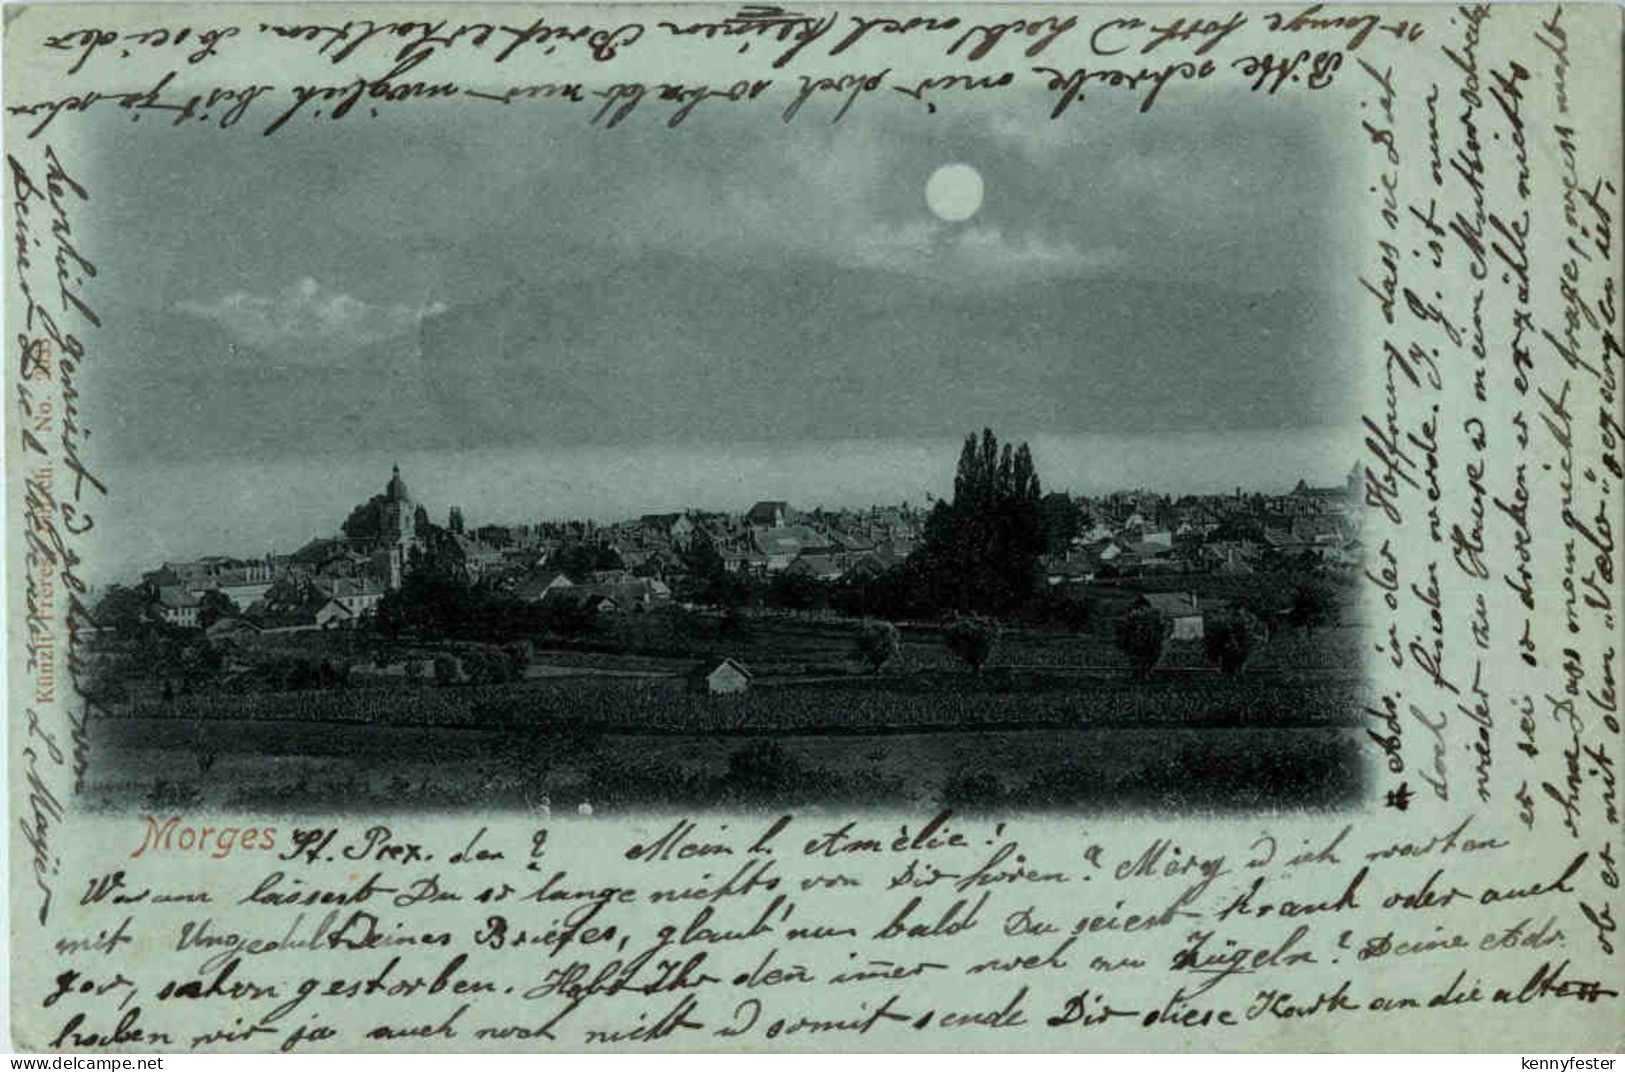 Morges St. Prex. den ? Mein l. Amèlie!
Warum lässest Du so lange nichts von Dir hören? Mèry u ich warten
mit Ungedult Deines Briefes, glaub' nun bald Du seiest krank oder auch
gar, schon gestorben. Habt Ihr denn immer noch zu Zügeln? Deine Adr.
haben wir ja auch noch nicht u somit sende Dir diese Kart an die alte
Adr. in der Hoffnung dass sie Dich
doch finden werde. Jg. G. ist nun
wieder zu Hause u mein Mutter schreibt
er sei so trocken er erzähle nichts
ohne Dass man nicht frage, weiss nicht
ob er mit dem "Velo" gegangen ist.
Bitte schreibe mir doch sobald nur möglich bist ja schon
so lange fort u hast noch keinen Brief erhalten. Sei der
herzlich gegrüsst u geküsst von
Deiner Dich liebenden L. Mayer
Künzli Frères, Zürich. No. 203
delcampe.net
kennyfester